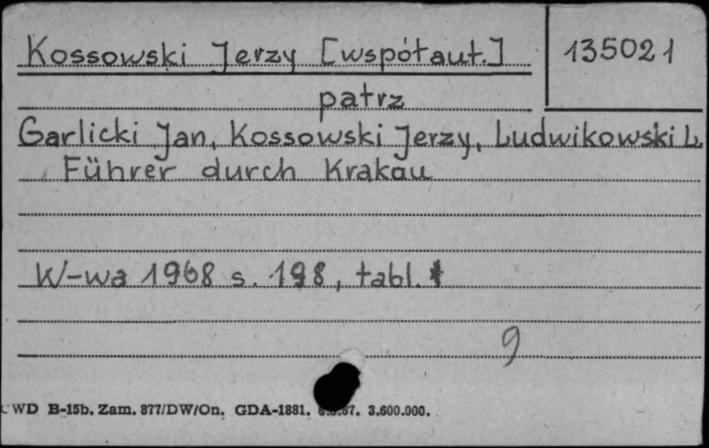 Kossowski Jerzy [współaut.]
135021
patrz
Garlicki Jan, Kossowski Jerzy, Ludwikowski L.
Führer durch Krakau
W-wa 1968 s. 198, tabl.
9
CWD B-15b. Zam. 877/DW/On. GDA-1881. 3.600.000.